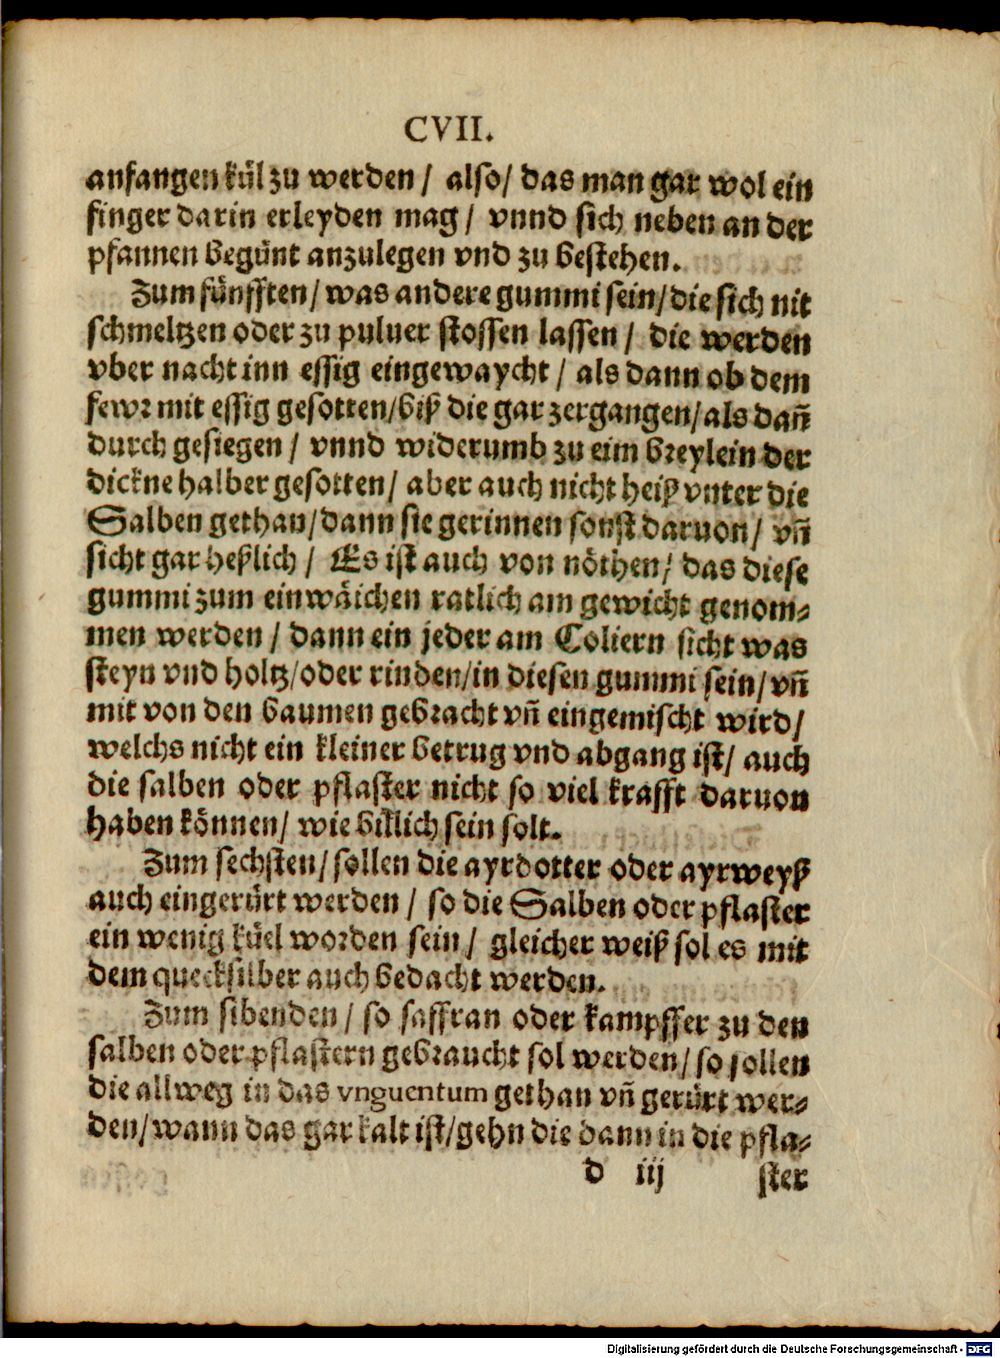 CVII.
anfangen kül zu werden / also / das man gar wol ein
finger darin erleyden mag / vnnd sich neben an der
pfannen begünt anzulegen vnd zu bestehen.
Zum fünfften / was andere gummi sein / die sich nit
schmeltzen oder zu puluer stossen lassen / die werden
vber nacht inn essig eingewaycht / als dann ob dem
fewr mit essig gesotten / biß die gar zergangen / als dañ
durch gesiegen / vnnd widerumb zu eim breylein der
dickne halber gesotten / aber auch nicht heiß vnter die
Salben gethan / dann sie gerinnen sonst daruon / vñ
sicht gar heßlich / Es ist auch von nöthen / das diese
gummi zum einwäichen ratlich am gewicht genom⸗
men werden / dann ein jeder am Coliern sicht was
steyn vnd holtz / oder rinden / in diesen gummi sein / vñ
mit von den baumen gebracht vñ eingemischt wird /
welchs nicht ein kleiner betrug vnd abgang ist / auch
die salben oder pflaster nicht so viel krafft daruon
haben können / wie billich sein solt.
Zum sechsten / sollen die ayrdotter oder ayrweyß
auch eingerürt werden / so die Salben oder pflaster
ein wenig küel worden sein / gleicher weiß sol es mit
dem quecksilber auch bedacht werden.
Zum sibenden / so saffran oder kampffer zu den
salben oder pflastern gebraucht sol werden / so sollen
die allweg in das vnguentum gethan vñ gerürt wer⸗
den / wann das gar kalt ist / gehn die dann in die pfla⸗
d iij ster
Digitalisierung gefördert durch die Deutsche Forschungsgemeinschaft - DFG